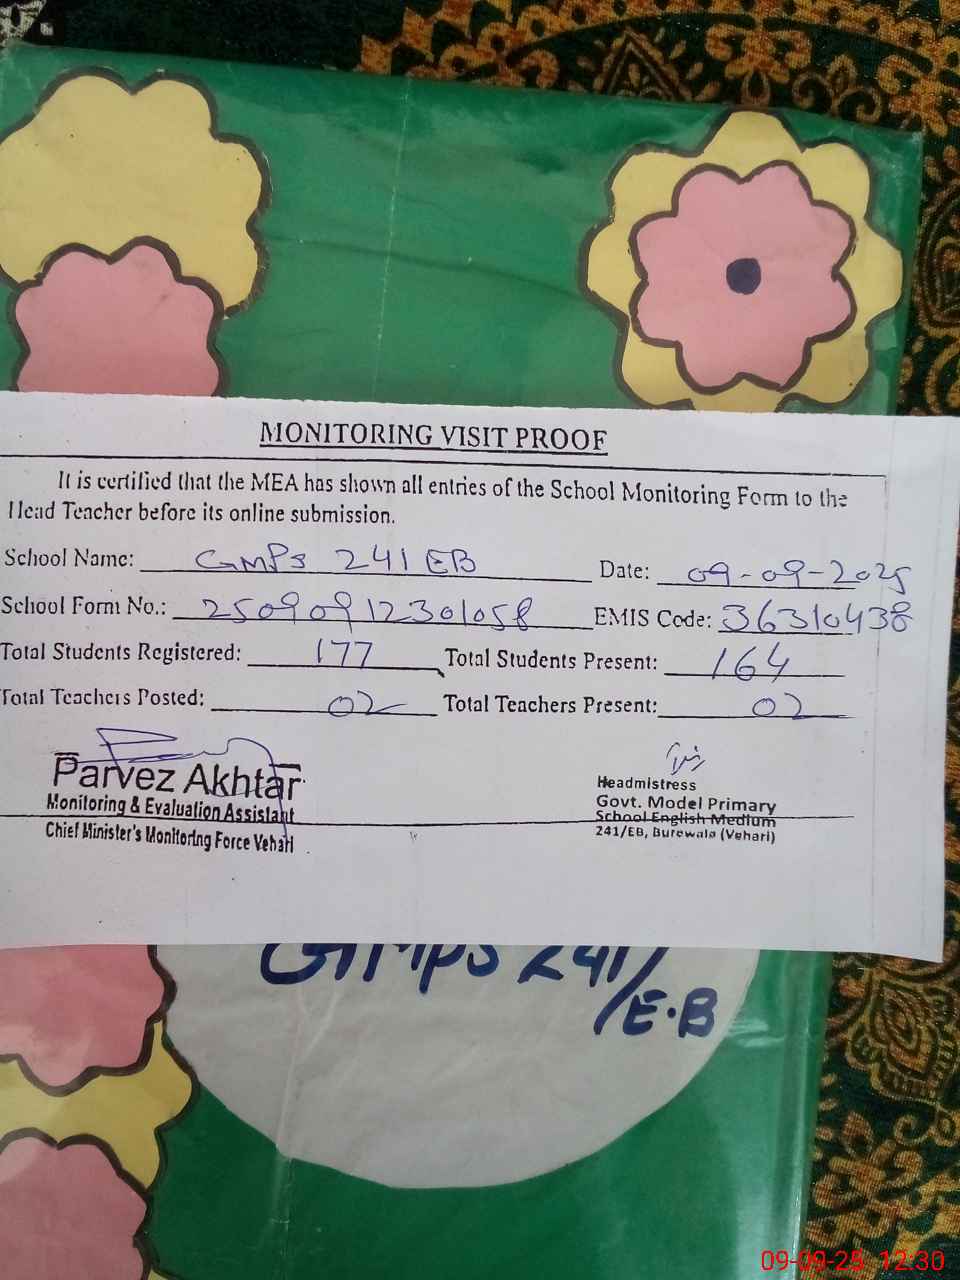 MONITORING VISIT PROOF
It is certified that the MEA has shown all entries of the School Monitoring Form to the
Head Teacher before its online submission.
School Name: GMPS 241 EB Date: 09-09-2025
School Form No.: 25090912301058 EMIS Code: 36310438
Total Students Registered: 177 Total Students Present: 164
Total Teachers Posted: 02 Total Teachers Present: 02
Parvez Akhtar
Monitoring & Evaluation Assistant
Chief Minister's Monitoring Force Vehari
Headmistress
Govt. Model Primary
School English Medium
241/EB, Burewala (Vehari)
GMPS 241/
E.B
09-09-25 12:30